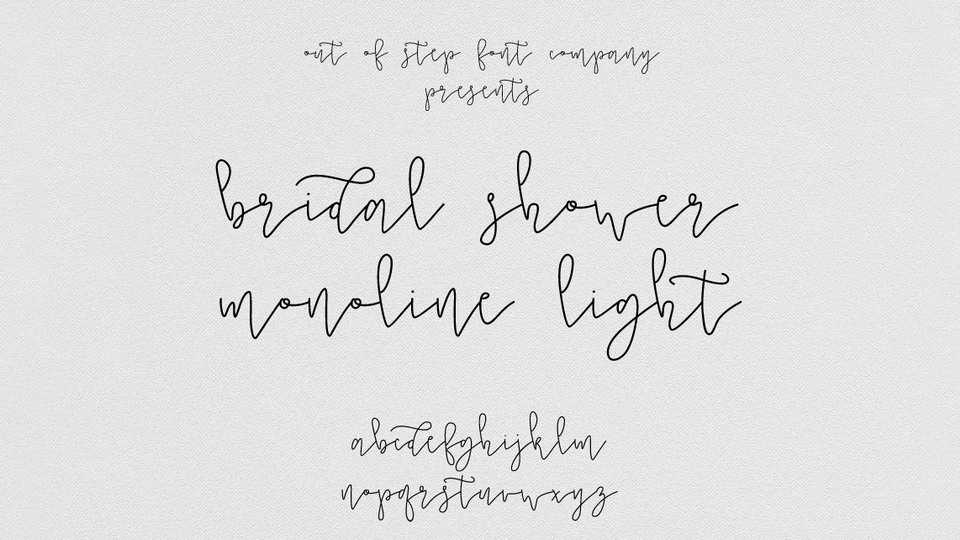 out of step font company
presents
bridal shower
monoline light
abcdefghijklm
nopqrstuvwxyz